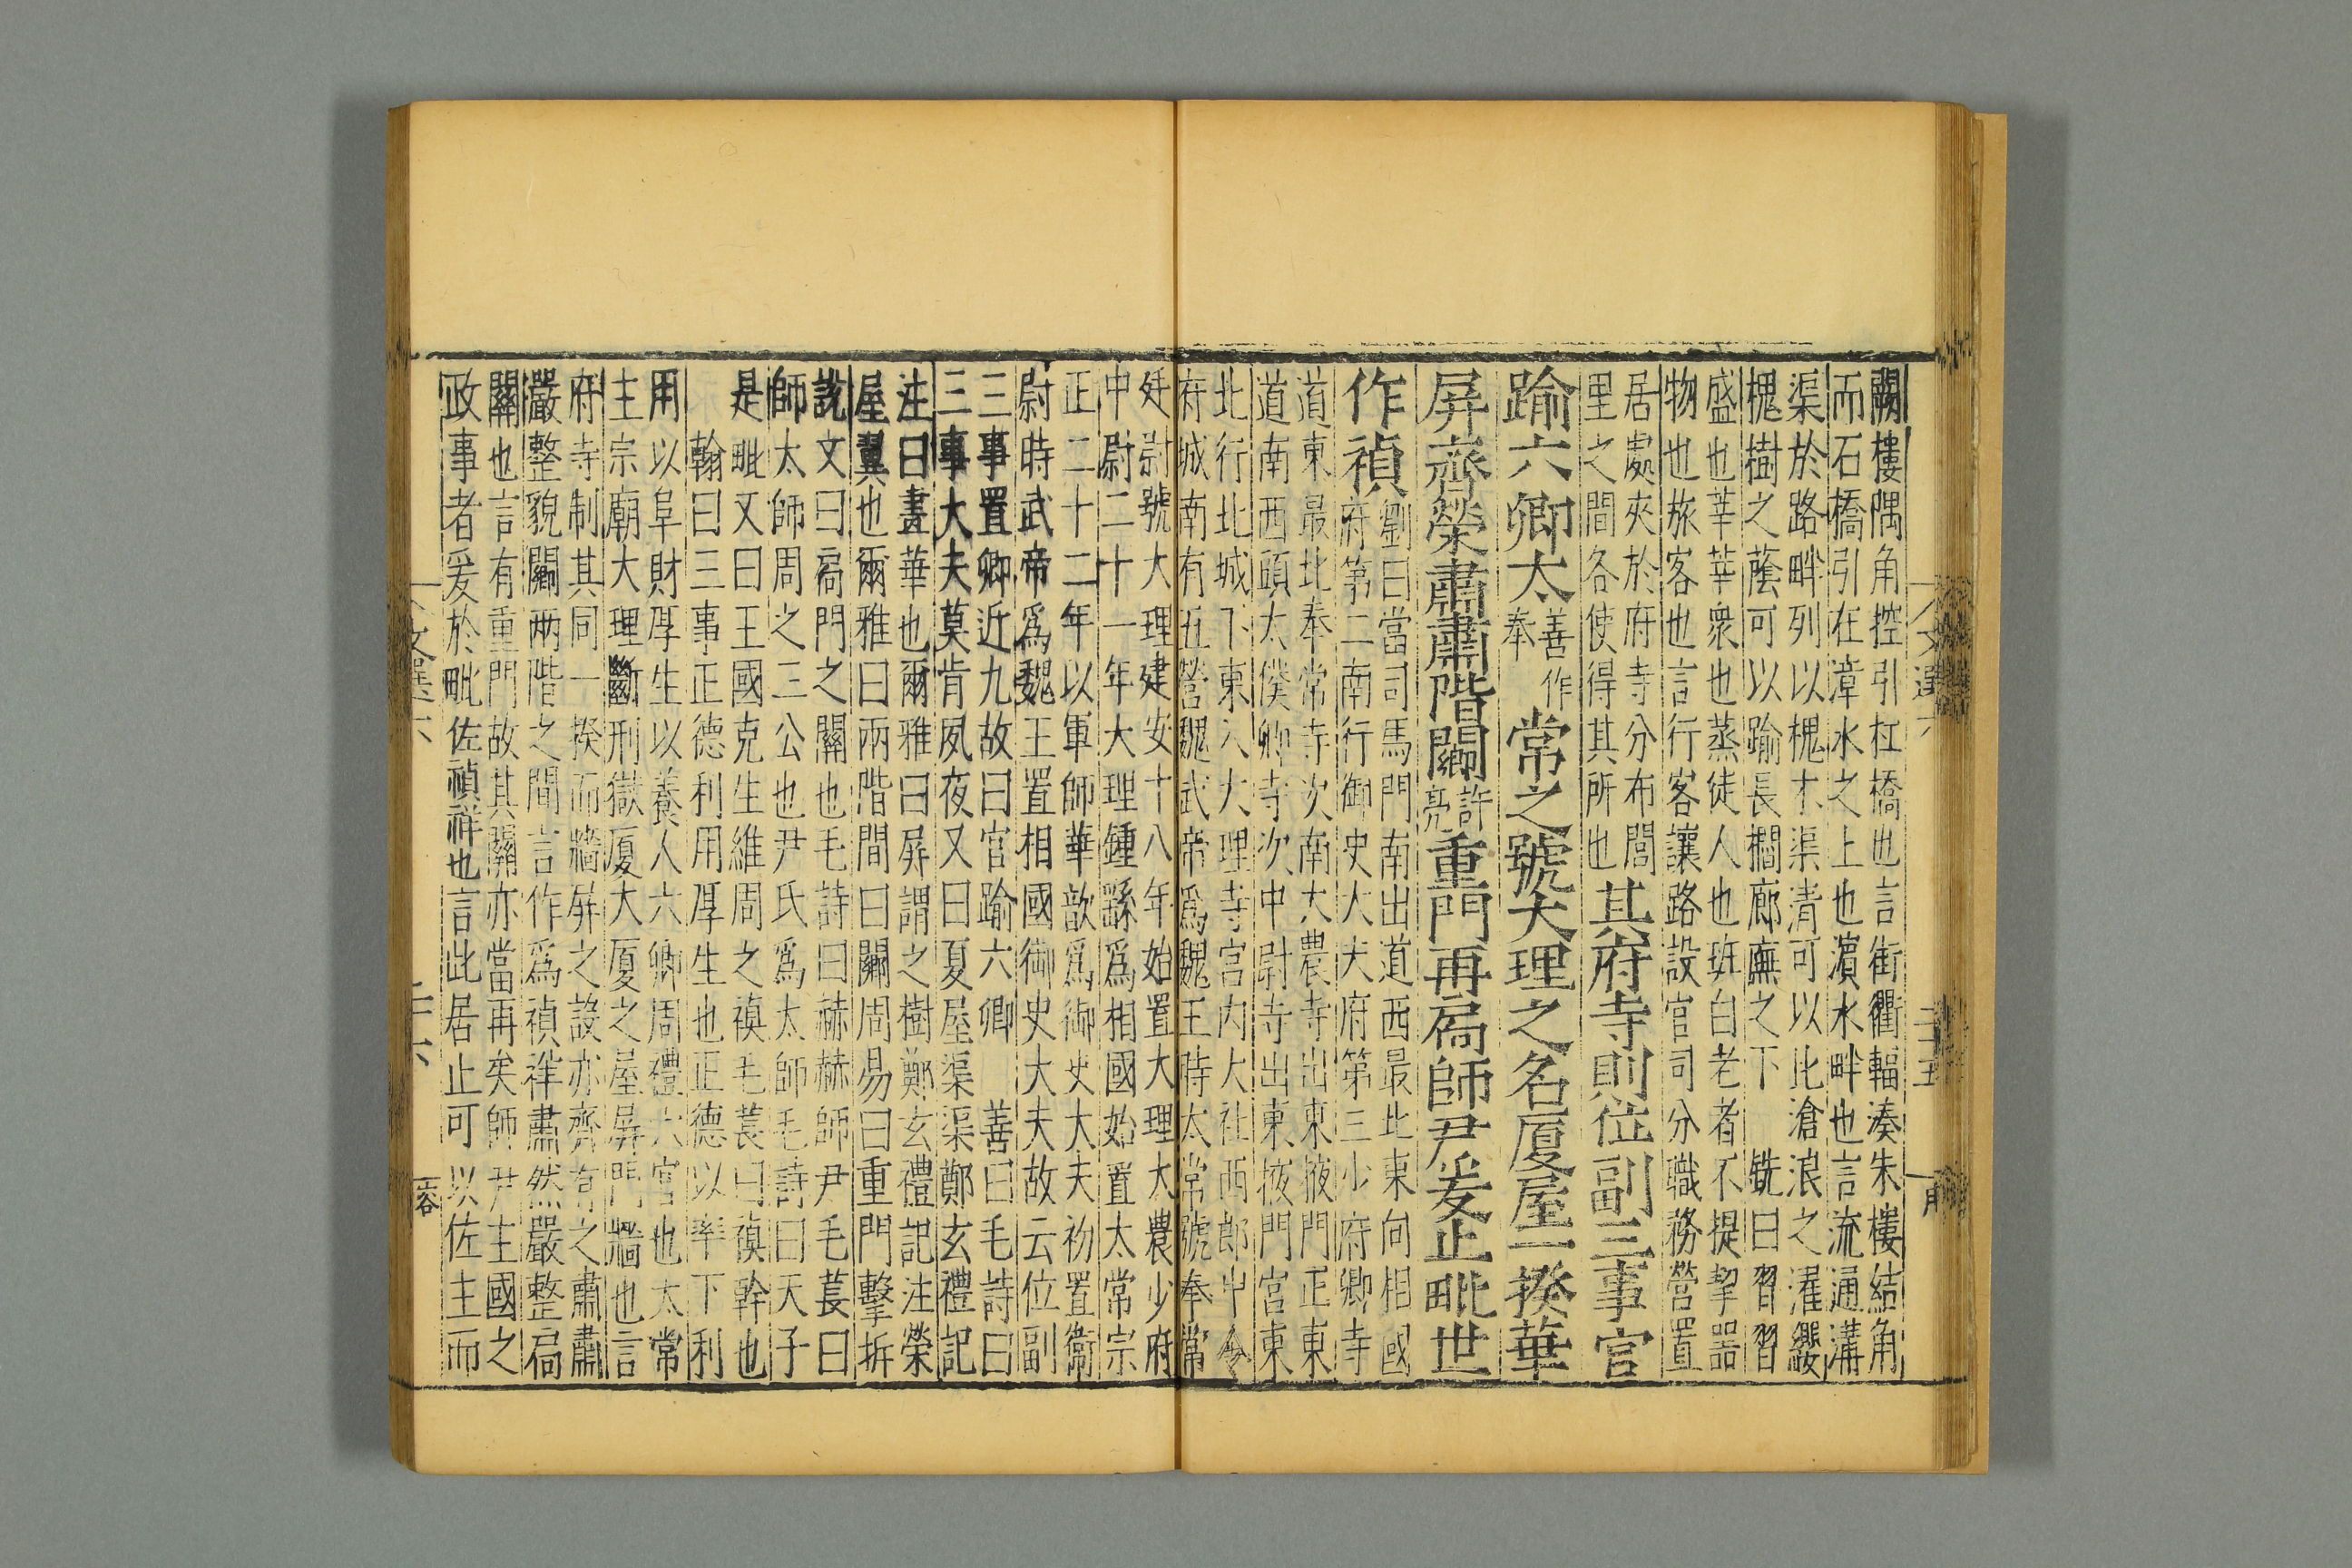 闕樓隅角控引杠橋也言街衢輻湊朱樓結角
而石橋引在漳水之上也濵水畔也言流通溝
渠於路畔列以槐木渠清可以比滄浪之濯纓
槐樹之蔭可以踰長櫩廊廡之下 銑曰習習
盛也莘莘衆也蒸徒人也班白老者不提挈器
物也旅客也言行客讓路設官司分職務營置
居處夾於府寺分布閭
里之間各使得其所也
其府寺則位副三事官
踰六卿太
善作
奉
常之號大理之名廈屋一揆華
屏齊榮肅肅階闥
許
亮
重門再扃師尹爰止毗世
作禎
劉曰當司馬門南出道西最北東向相國
府第二南行御史大夫府第三少府卿寺
道東最北奉常寺次南大農寺出東掖門正東
道南西頭太僕卿寺次中尉寺出東掖門宫東
北行北城下東入大理寺宫内大社西郎中令
府城南有五營魏武帝爲魏王時太常號奉常
廷尉號大理建安十八年始置大理大農少府
中尉二十一年大理鍾繇爲相國始置太常宗
正二十二年以軍師華歆爲御史大夫初置衛
尉時武帝爲魏王置相國御史大夫故云位副
三事置卿近九故曰官踰六卿 善曰毛詩曰
三事大夫莫肯夙夜又曰夏屋渠渠鄭玄禮記
注曰畫華也爾雅曰屏謂之樹鄭玄禮記注榮
屋翼也爾雅曰兩階間曰闥周易曰重門擊柝
說文曰扃門之關也毛詩曰赫赫師尹毛萇曰
師太師周之三公也尹氏爲太師毛詩曰天子
是毗又曰王國克生維周之禎毛萇曰禎幹也
翰曰三事正德利用厚生也正德以率下利
用以阜財厚生以養人六卿周禮六官也太常
主宗廟大理斷刑獄廈大廈之屋屏門牆也言
府寺制其同一揆而牆屏之設亦齊
之肅肅
嚴整貌闥兩階之間言作爲禎祥肅然嚴整扃
關也言有重門故其關亦當再矣師尹主國之
政事者爰於毗佐禎祥也言此居止可以佐主而
文選六
二十五
文選六
二十六